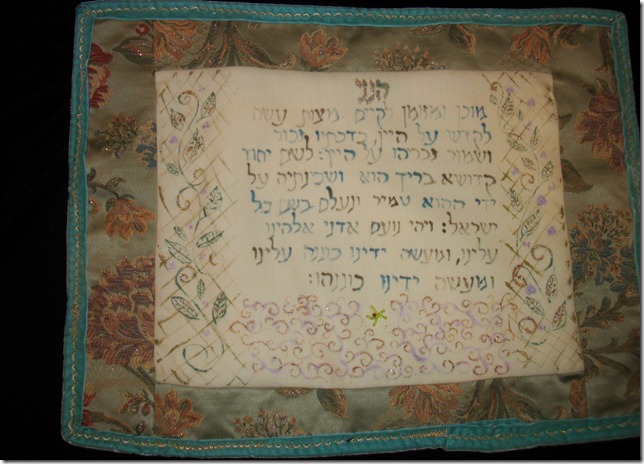 הנני
מוכן ומזומן לקיים מצות עשה
לקדש על היין, כדכתיב זכור
ושמור זכריהו על היין: לשם יחוד
קדושא בריך הוא ושכינתיה על
ידי ההוא טמיר ונעלם בשם כל
ישראל: ויהי נועם אדני אלהינו
עלינו, ומעשה ידינו כוננה עלינו
ומעשה ידינו כוננהו: